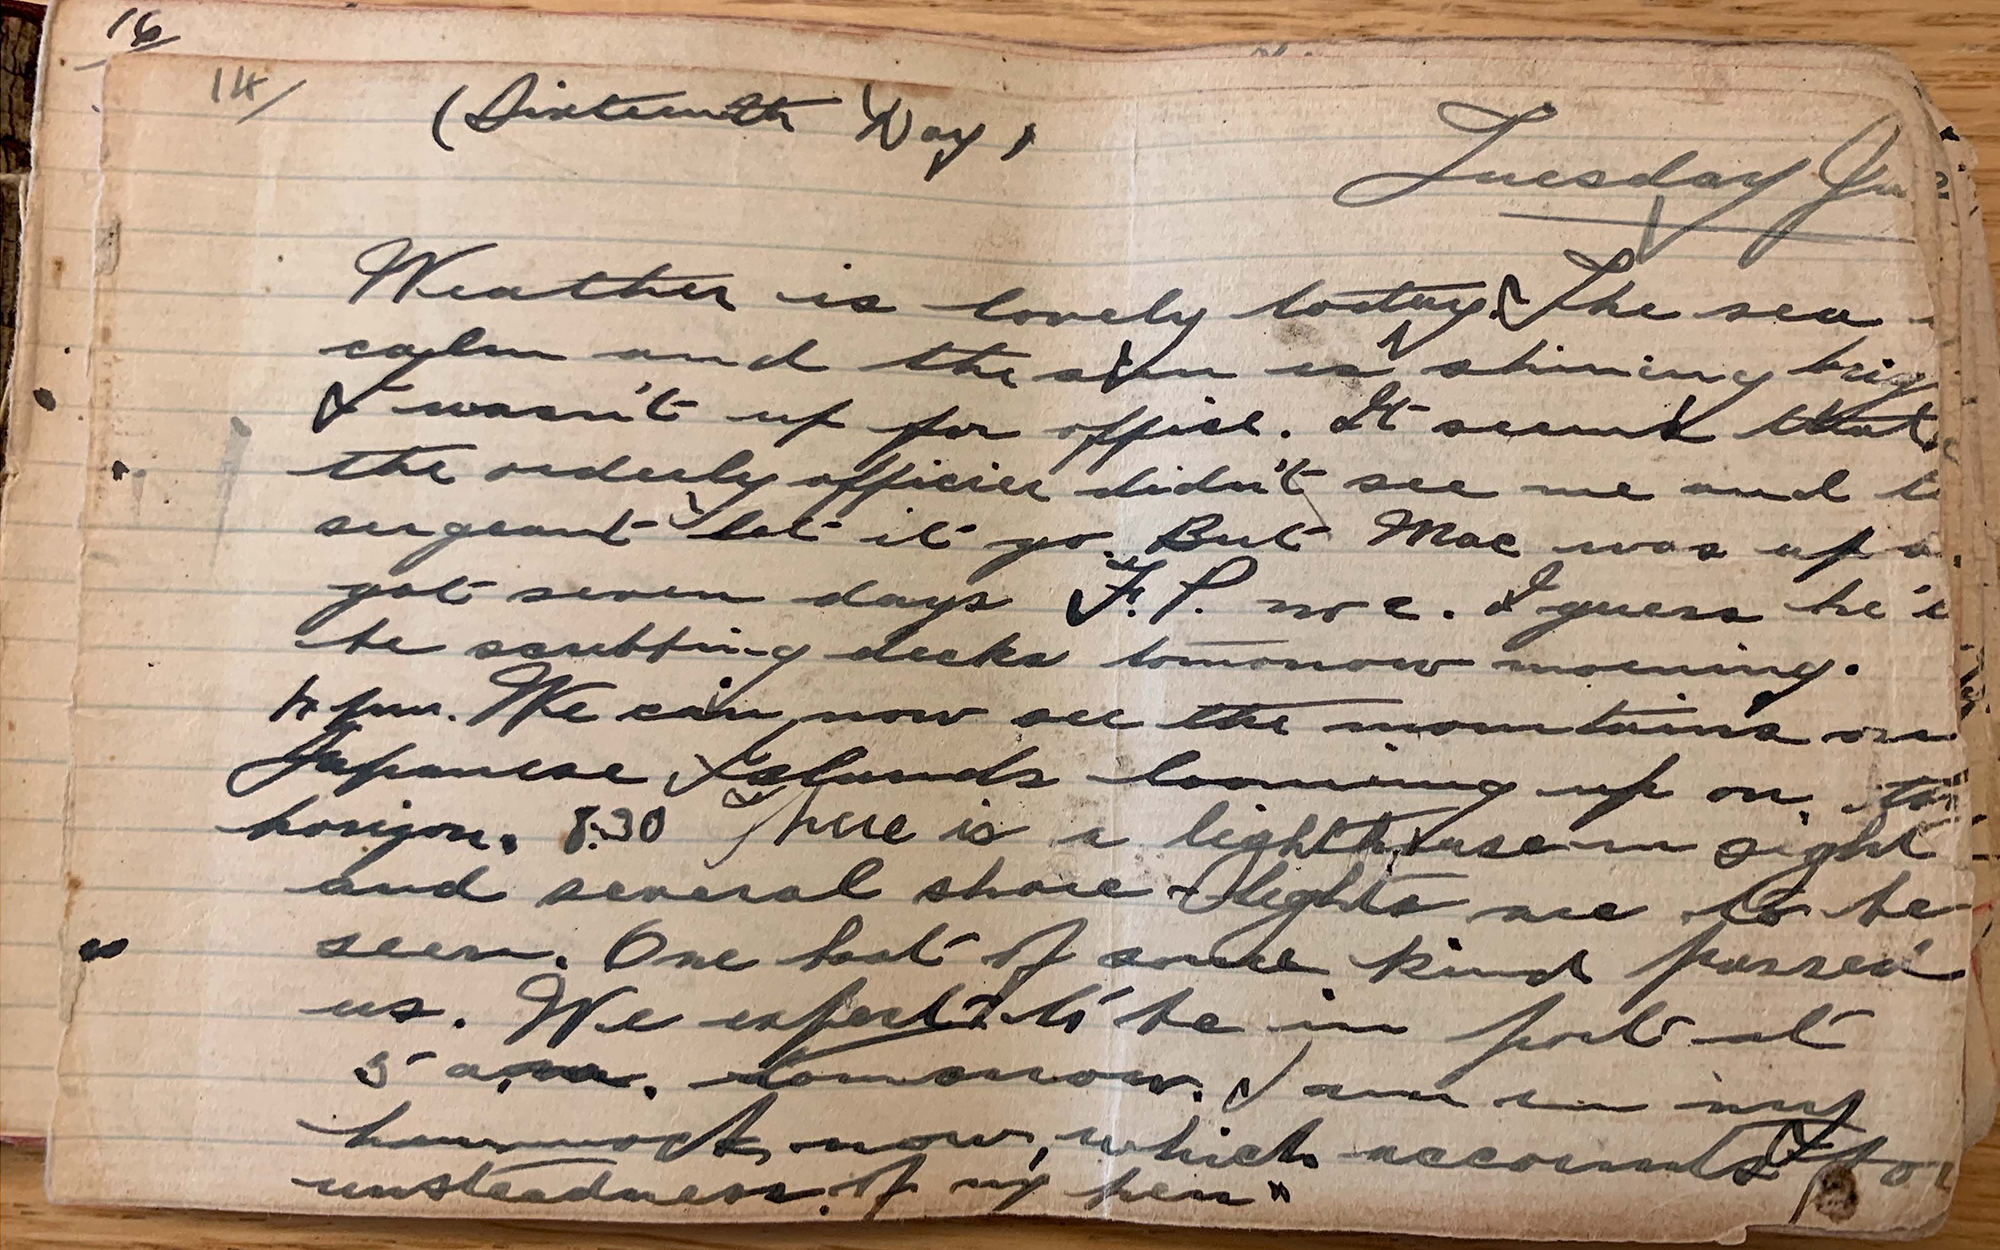 16
14
(Sixteenth Day)
Tuesday
Weather is lovely today. The sea
calm and the sun is shining brig
I wasn't up for office. It seems that
the orderly officier didn't see me and
sergeant let it go. But Mac was up
got seven days F. P. no 2. I guess he'
be scrubbing decks tomorrow morning.
pm. We can now see the mountains on
Japanese Islands looming up on
horizon. 8:30 There is a lighthouse in sight
and several shore lights are to be
seen. One boat of some kind passed
us. We expect to be in port at
5 am. tomorrow. I am in my
hammock now, which accounts for
unsteadness of my pen"